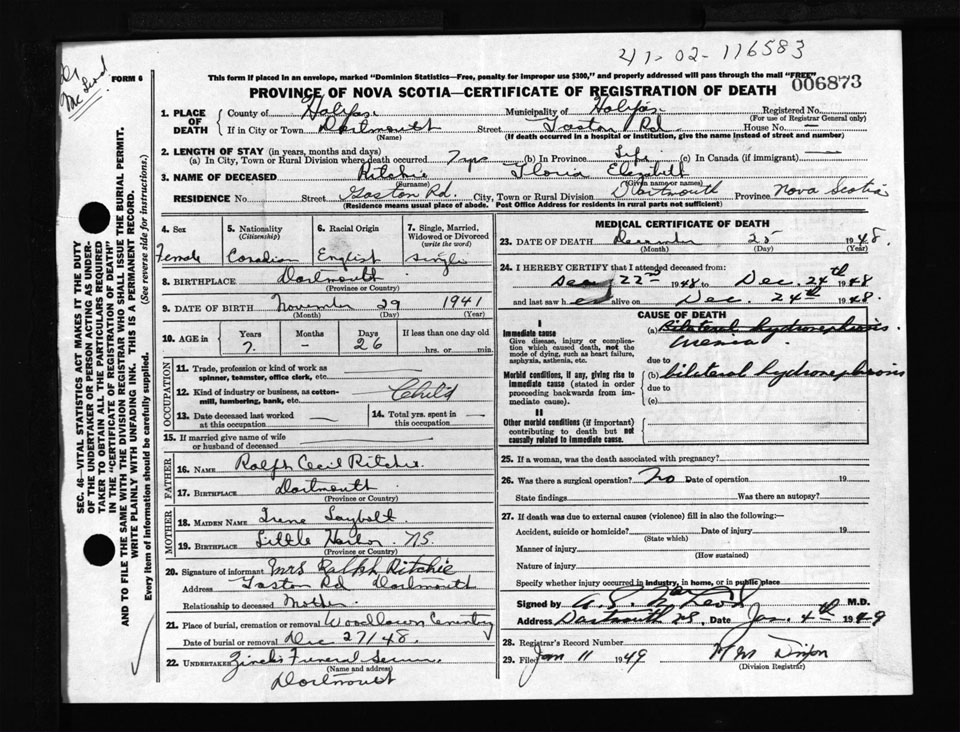 41-02-116583
Dr
McLeod
FORM 6
This form if placed in an envelope, marked "Dominion Statistics—Free, penalty for improper use $300," and properly addressed will pass through the mail "FREE"
006873
PROVINCE OF NOVA SCOTIA—CERTIFICATE OF REGISTRATION OF DEATH
1. PLACE OF DEATH County of Halifax. Municipality of Halifax. Registered No.
(For use of Registrar General only)
If in City or Town Dartmouth Street Gaston Rd. House No. —
(Name) (If death occurred in a hospital or institution, give the name instead of street and number)
2. LENGTH OF STAY (in years, months and days)
(a) In City, Town or Rural Division where death occurred 7 yrs (b) In Province Life (c) In Canada (if immigrant) —
3. NAME OF DECEASED Ritchie Gloria Elizabeth
(Surname) (Given name or names)
RESIDENCE No. Street Gaston Rd. City, Town or Rural Division Dartmouth Province Nova Scotia
(Residence means usual place of abode. Post Office Address for residents in rural parts not sufficient)
4. Sex 5. Nationality (Citizenship) 6. Racial Origin 7. Single, Married, Widowed or Divorced (write the word)
Female Canadian English Single
8. BIRTHPLACE Dartmouth
(Province or Country)
9. DATE OF BIRTH November 29 1941
(Month) (Day) (Year)
10. AGE in Years Months Days If less than one day old
7. — 26 hrs. or min.
OCCUPATION
11. Trade, profession or kind of work as spinner, teamster, office clerk, etc. —
12. Kind of industry or business, as cotton-mill, lumbering, bank, etc. Child
13. Date deceased last worked at this occupation —
14. Total yrs. spent in this occupation —
15. If married give name of wife or husband of deceased —
FATHER
16. NAME Ralph Cecil Ritchie.
17. BIRTHPLACE Dartmouth
(Province or Country)
MOTHER
18. MAIDEN NAME Irene Laybolt
19. BIRTHPLACE Little Harbor. NS.
(Province or Country)
20. Signature of informant Mrs Ralph Ritchie
Address Gaston Rd Dartmouth
Relationship to deceased Mother.
21. Place of burial, cremation or removal Woodlawn Cemetery
Date of burial or removal Dec 27/48.
22. UNDERTAKER Funeral
(Name and address)
Dartmouth
MEDICAL CERTIFICATE OF DEATH
23. DATE OF DEATH December 25 1948.
(Month) (Day) (Year)
24. I HEREBY CERTIFY that I attended deceased from:
Dec 22nd 1948 to Dec. 24th 1948
and last saw h er alive on Dec. 24th 1948.
CAUSE OF DEATH
I
Immediate cause
Give disease, injury or complication which caused death, not the mode of dying, such as heart failure, asphyxia, asthenia, etc.
(a) Bilateral hydronephrosis.
Uremia
due to
Morbid conditions, if any, giving rise to immediate cause (stated in order proceeding backwards from immediate cause).
(b) bilateral hydronephrosis
due to
(c)
II
Other morbid conditions (if important) contributing to death but not causally related to immediate cause.
25. If a woman, was the death associated with pregnancy?
26. Was there a surgical operation? No Date of operation 19
State findings Was there an autopsy?
27. If death was due to external causes (violence) fill in also the following:—
Accident, suicide or homicide? Date of injury 19
(State which)
Manner of injury
(How sustained)
Nature of injury
Specify whether injury occurred in industry, in home, or in public place
Signed by McLeod M.D.
Address Dartmouth NS. Date Jan. 4th 1949
28. Registrar's Record Number
29. Filed Jan 11 1949 Mrs
(Division Registrar)
SEC. 46—VITAL STATISTICS ACT MAKES IT THE DUTY
OF THE UNDERTAKER OR PERSON ACTING AS UNDER-
TAKER TO OBTAIN ALL THE PARTICULARS REQUIRED
IN THE "CERTIFICATE OF REGISTRATION OF DEATH"
AND TO FILE THE SAME WITH THE DIVISION REGISTRAR WHO SHALL ISSUE THE BURIAL PERMIT.
WRITE PLAINLY WITH UNFADING INK. THIS IS A PERMANENT RECORD.
Every item of information should be carefully supplied. (See reverse side for instructions.)